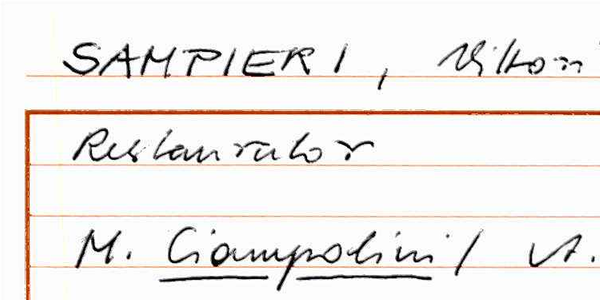 SAMPIERI, Vittori
Restaurator
M. Ciampolini / A.